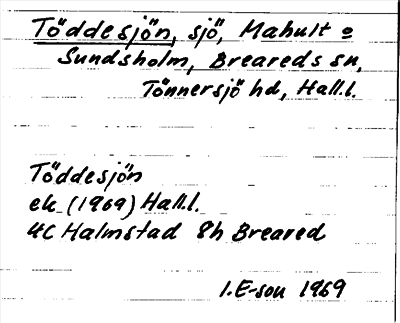 Töddesjön, sjö, Mahult o
Sundsholm, Breareds sn,
Tönnersjö hd, Hall.l.
Töddesjön
ek (1969) Hall.l.
4C Halmstad 8h Breared
I.E-son 1969